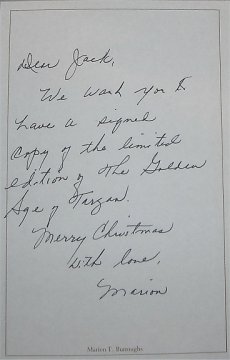 Dear Jack,
We want you to
have a signed
copy of the limited
edition of the Golden
Age of Tarzan.
Merry Christmas
with love,
Marion
Marion T. Burroughs